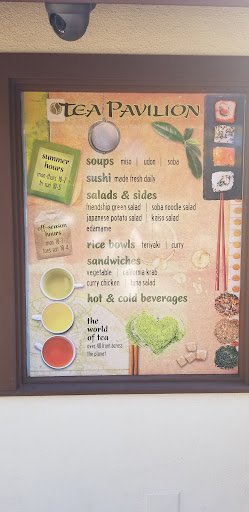 TEA PAVILION
summer
hours
mon-thurs 10-7
fri-sun 10-5
soups miso | udon | soba
sushi made fresh daily
salads & sides
friendship green salad | soba noodle salad
japanese potato salad | kaiso salad
edamame
off-season
hours
rice bowls teriyaki | curry
sandwiches
vegetable | california krab
curry chicken | tuna salad
hot & cold beverages
the
world
of tea
over 40 from across
the planet